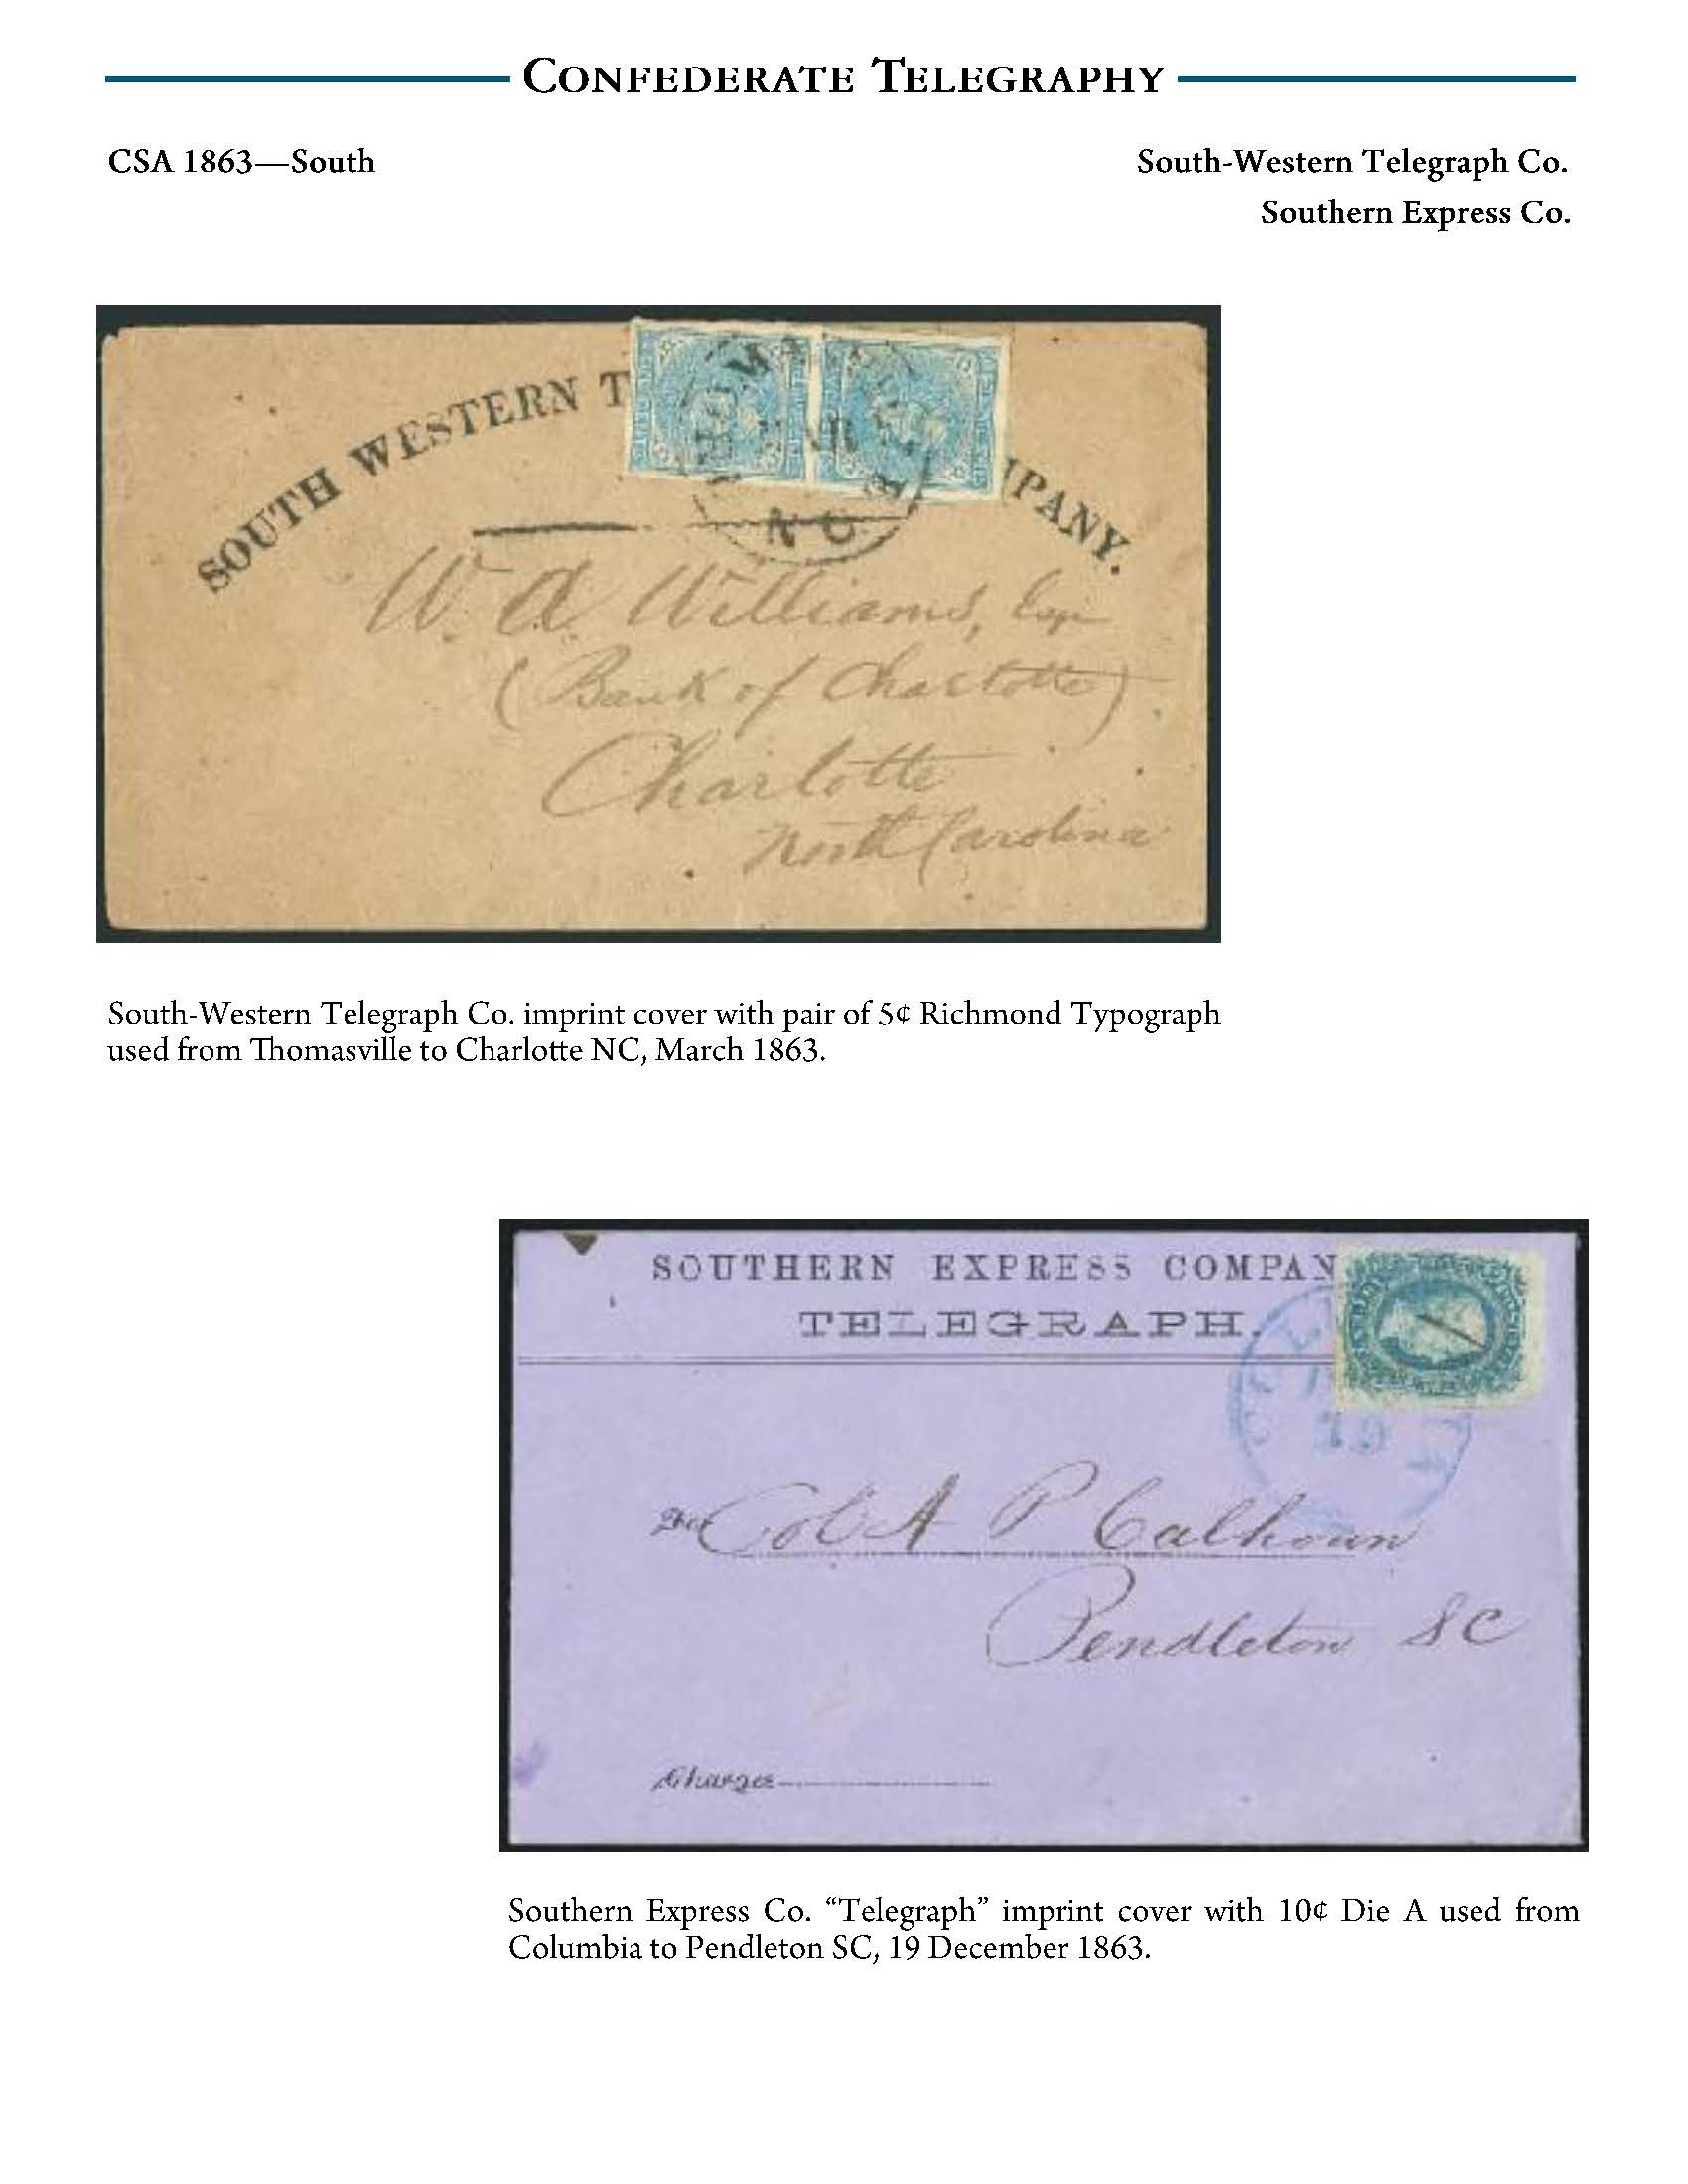 CONFEDERATE TELEGRAPHY
CSA 1863—South
South-Western Telegraph Co.
Southern Express Co.
SOUTH WESTERN T
MPANY.
N C
W. A. Williams, Esqr
(Bank of Charlotte)
Charlotte
North Carolina
South-Western Telegraph Co. imprint cover with pair of 5¢ Richmond Typograph
used from Thomasville to Charlotte NC, March 1863.
SOUTHERN EXPRESS COMPAN
TELEGRAPH.
19
Col A P Calhoun
Pendleton SC
Charges
Southern Express Co. “Telegraph” imprint cover with 10¢ Die A used from
Columbia to Pendleton SC, 19 December 1863.